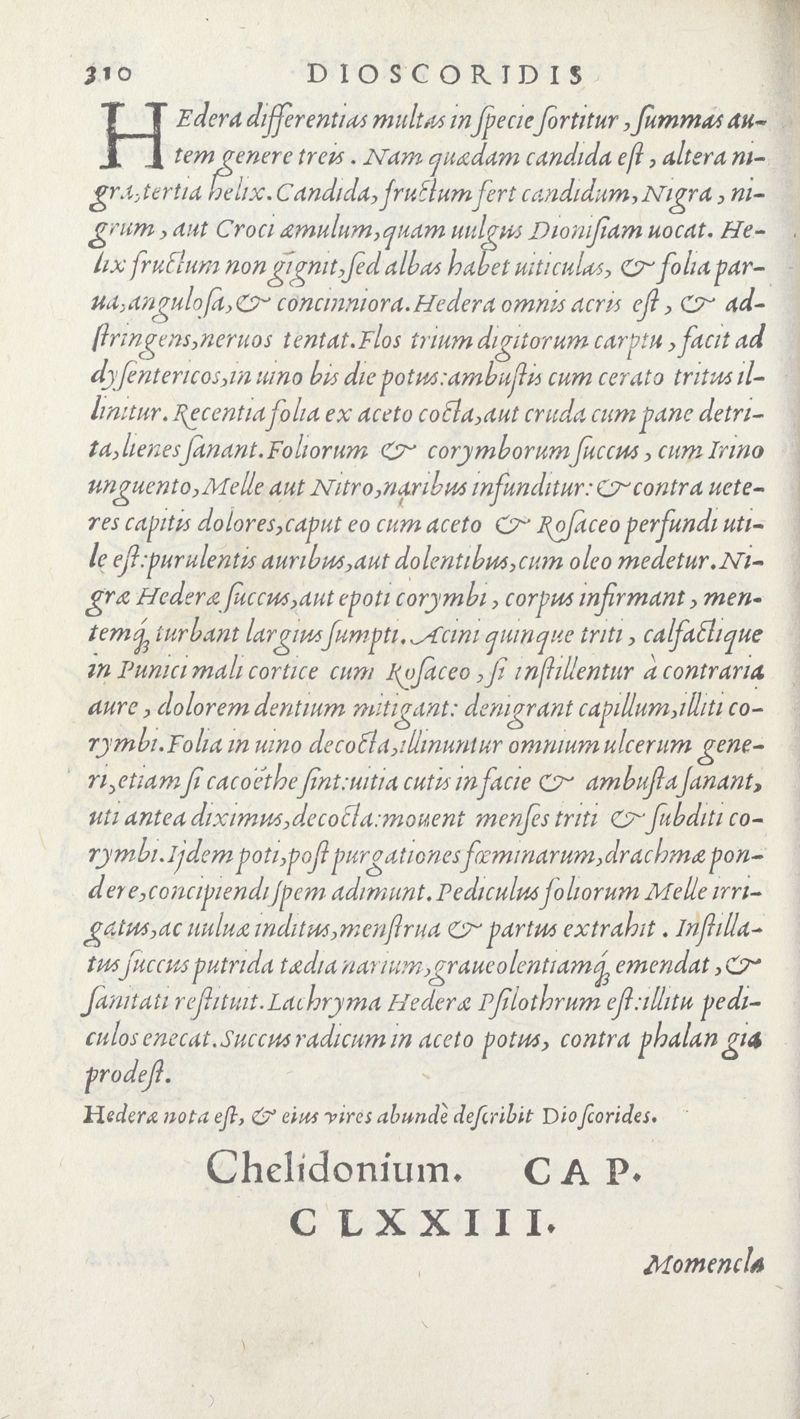 310 DIOSCORIDIS
HEdera differentias multas in ſpecie ſortitur, ſummas au-
tem genere treis. Nam quædam candida eſt, altera ni-
gra, tertia helix. Candida, fructum fert candidum, Nigra, ni-
grum, aut Croci æmulum, quam uulgus Dioniſiam uocat. He-
lix fructum non gignit, ſed albas habet uiticulas, & folia par-
ua, anguloſa, & concinniora. Hedera omnis acris eſt, & ad-
ſtringens, neruos tentat. Flos trium digitorum carptu, facit ad
dyſentericos, in uino bis die potus: ambuſtis cum cerato tritus il-
linitur. Recentia folia ex aceto cocta, aut cruda cum pane detri-
ta, lienes ſanant. Foliorum & corymborum ſuccus, cum Irino
unguento, Melle aut Nitro, naribus infunditur: & contra uete-
res capitis dolores, caput eo cum aceto & Roſaceo perfundi uti-
le eſt: purulentis auribus, aut dolentibus, cum oleo medetur. Ni-
græ Hederæ ſuccus, aut epoti corymbi, corpus infirmant, men-
temq́ꝫ turbant largius ſumpti. Acini quinque triti, calfactique
in Punici mali cortice cum Roſaceo, ſi inſtillentur à contraria
aure, dolorem dentium mitigant: denigrant capillum, illiti co-
rymbi. Folia in uino decocta, illinuntur omnium ulcerum gene-
ri, etiam ſi cacoëthe ſint: uitia cutis in facie & ambuſta ſanant,
uti antea diximus, decocta: mouent menſes triti & ſubditi co-
rymbi. Ijdem poti, poſt purgationes fœminarum, drachmæ pon-
dere, concipiendi ſpem adimunt. Pediculus foliorum Melle irri-
gatus, ac uuluæ inditus, menſtrua & partus extrahit. Inſtilla-
tus ſuccus putrida tædia narium, graueolentiamq́ꝫ emendat, &
ſanitati reſtituit. Lachryma Hederæ Pſilothrum eſt: illitu pedi-
culos enecat. Succus radicum in aceto potus, contra phalangia
prodeſt.
Hederæ nota eſt, & eius vires abundè deſcribit Dioſcorides.
Chelidonium. CAP.
CLXXIII.
Momencla